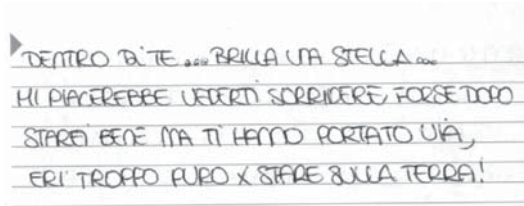 DENTRO DI TE... BRILLA UNA STELLA...
MI PIACEREBBE VEDERTI SORRIDERE, FORSE DOPO
STAREI BENE MA TI HANNO PORTATO VIA,
ERI TROPPO PURO X STARE SULLA TERRA!